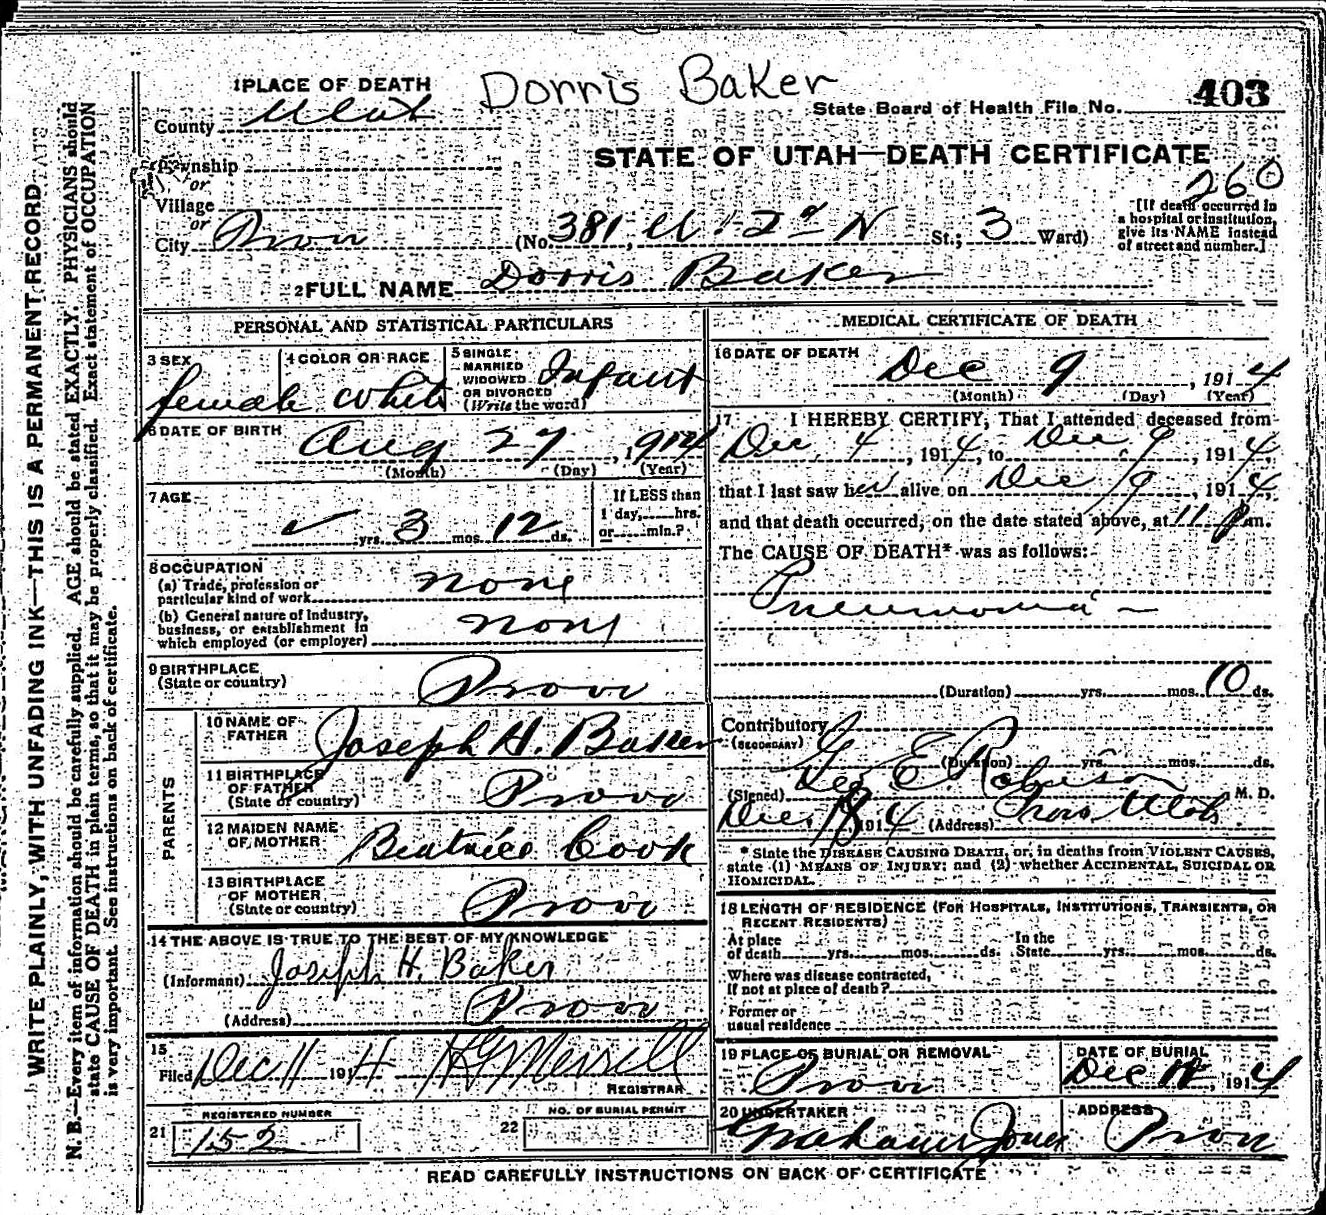 Dorris Baker
1 PLACE OF DEATH
County Utah
State Board of Health File No. 403
STATE OF UTAH—DEATH CERTIFICATE
260
Township
or
Village
or
City Provo (No. 381, W 2nd N St.; 3 Ward)
[If death occurred in
a hospital or institution,
give its NAME instead
of street and number.]
2 FULL NAME Dorris Baker
PERSONAL AND STATISTICAL PARTICULARS
3 SEX
female
4 COLOR OR RACE
white
5 SINGLE
MARRIED
WIDOWED
OR DIVORCED
(Write the word)
Infant
6 DATE OF BIRTH
Aug 27, 1914
(Month) (Day) (Year)
7 AGE
✓ yrs. 3 mos. 12 ds.
If LESS than
1 day, hrs.
or min.?
8 OCCUPATION
(a) Trade, profession or
particular kind of work none
(b) General nature of Industry,
business, or establishment in
which employed (or employer) none
9 BIRTHPLACE
(State or country) Provo
PARENTS
10 NAME OF
FATHER Joseph H. Baker
11 BIRTHPLACE
OF FATHER
(State or country) Provo
12 MAIDEN NAME
OF MOTHER Beatrice Cook
13 BIRTHPLACE
OF MOTHER
(State or country) Provo
14 THE ABOVE IS TRUE TO THE BEST OF MY KNOWLEDGE
(Informant) Joseph H. Baker
(Address) Provo
15
Filed Dec 11 1914 H G Merrell
REGISTRAR
REGISTERED NUMBER
21 152
NO. OF BURIAL PERMIT
22
MEDICAL CERTIFICATE OF DEATH
16 DATE OF DEATH
Dec 9, 1914
(Month) (Day) (Year)
17 I HEREBY CERTIFY, That I attended deceased from
Dec 4, 1914, to Dec 9, 1914,
that I last saw her alive on Dec 9, 1914,
and that death occurred, on the date stated above, at 11 pm.
The CAUSE OF DEATH* was as follows:
Pneumonia
(Duration) yrs. mos. 10 ds.
Contributory
(SECONDARY)
(Duration) yrs. mos. ds.
(Signed) Geo E. Robison M. D.
Dec, 1914 (Address) Provo Utah.
* State the DISEASE CAUSING DEATH, or, in deaths from VIOLENT CAUSES,
state (1) MEANS OF INJURY; and (2) whether ACCIDENTAL, SUICIDAL OR
HOMICIDAL.
18 LENGTH OF RESIDENCE (FOR HOSPITALS, INSTITUTIONS, TRANSIENTS, OR
RECENT RESIDENTS)
At place
of death yrs. mos. ds.
In the
State yrs. mos. ds.
Where was disease contracted,
If not at place of death?
Former or
usual residence
19 PLACE OF BURIAL OR REMOVAL
Provo
DATE OF BURIAL
Dec, 1914
20 UNDERTAKER
Graham Jones
ADDRESS
Provo
READ CAREFULLY INSTRUCTIONS ON BACK OF CERTIFICATE
WRITE PLAINLY, WITH UNFADING INK—THIS IS A PERMANENT RECORD
N. B.—Every item of information should be carefully supplied. AGE should be stated EXACTLY. PHYSICIANS should
state CAUSE OF DEATH in plain terms, so that it may be properly classified. Exact statement of OCCUPATION
is very important. See instructions on back of certificate.